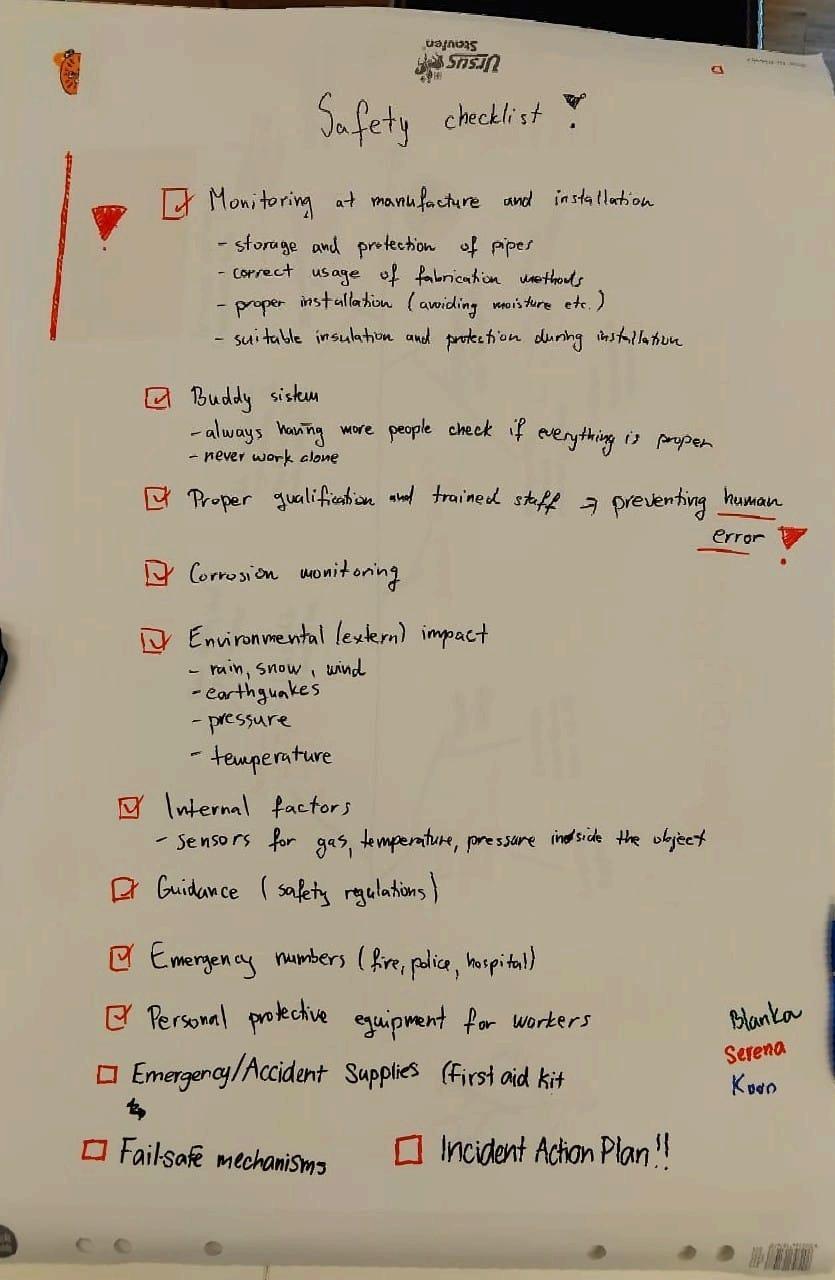 URSUS
Staufen
Safety checklist !
Monitoring at manufacture and installation
- storage and protection of pipes
- correct usage of fabrication methods
- proper installation (avoiding moisture etc.)
- suitable insulation and protection during installation
Buddy sistem
- always having more people check if everything is proper
- never work alone
Proper qualification and trained staff → preventing human
error !
Corrosion monitoring
Environmental (extern) impact
- rain, snow, wind
- earthquakes
- pressure
- temperature
Internal factors
- sensors for gas, temperature, pressure indside the object
Guidance (safety regulations)
Emergency numbers (fire, police, hospital)
Personal protective equipment for workers
Emergency/Accident Supplies (First aid kit
Fail-safe mechanisms
Incident Action Plan!!
Blanka
Serena